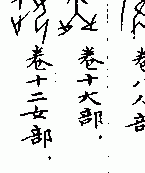 卷八人部
卷十大部，
卷十二女部，